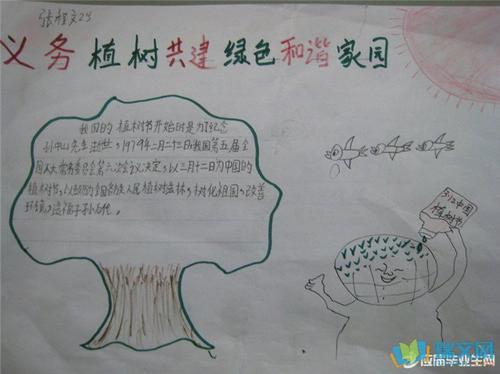 义务植树共建绿色和谐家园
我国的植树节开始时是为了纪念
孙中山先生逝世，1979年二月二十三日我国第五届全
国人大常务委员会第六次会议决定，以三月十二日为中国的
植树节，以鼓励全国各族人民植树造林，绿化祖国，改善
环境，造福子孙后代。
3.12中国
植树节
瑞文网
应届毕业生网